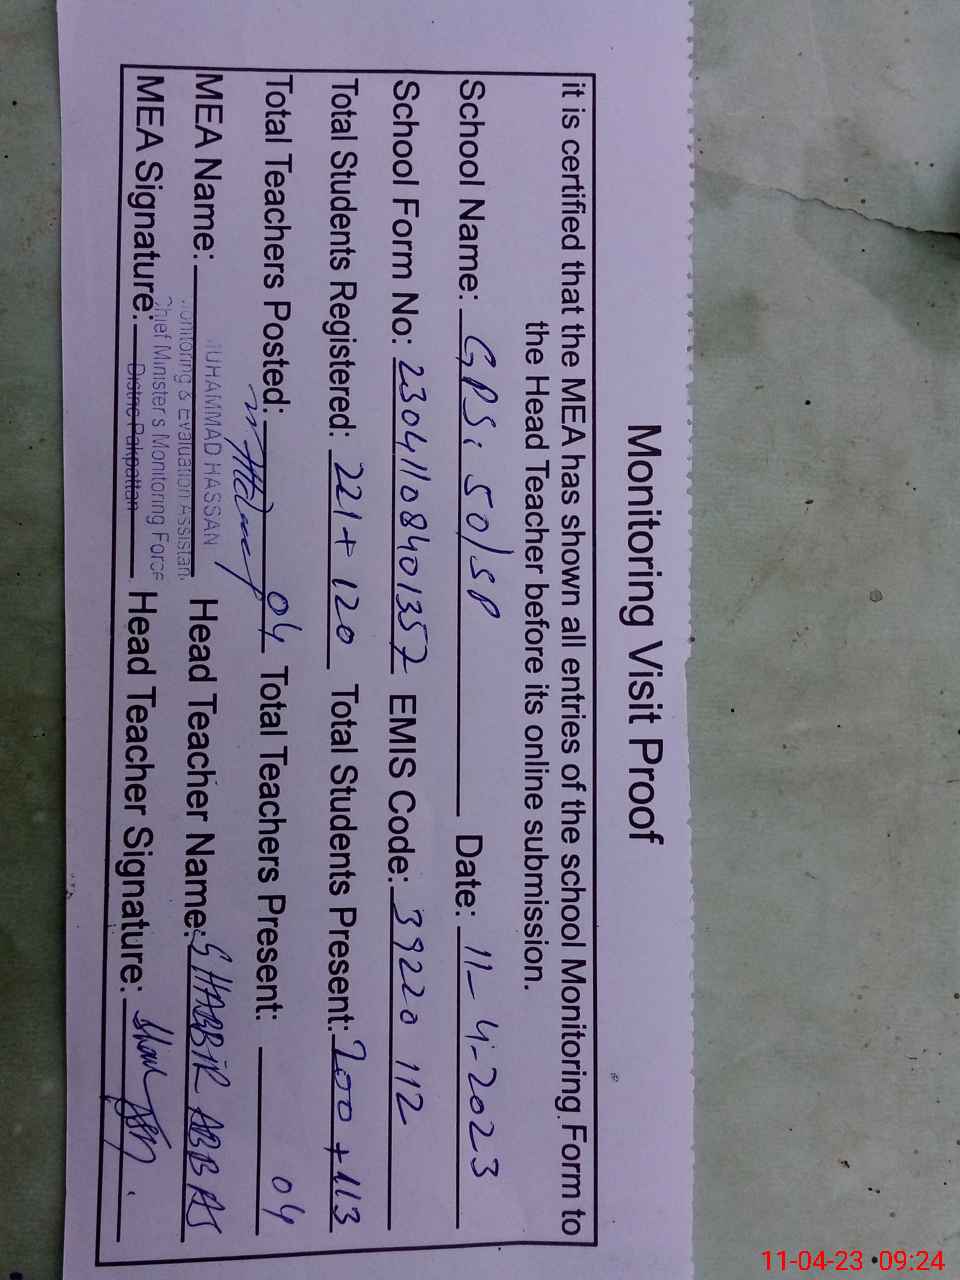 Monitoring Visit Proof
it is certified that the MEA has shown all entries of the school Monitoring Form to
the Head Teacher before its online submission.
School Name: GPS: 50/SP Date: 11-4-2023
School Form No: 23041108401357 EMIS Code: 39220 112
Total Students Registered: 221+120 Total Students Present: 200+113
Total Teachers Posted: 04 Total Teachers Present: 04
MEA Name: MUHAMMAD HASSAN Head Teacher Name: SHABBIR ABBAS
Monitoring & Evaluation Assistan
Chief Minister s Monitoring Force
MEA Signature: Distric Pakpattan Head Teacher Signature:
11-04-23 •09:24